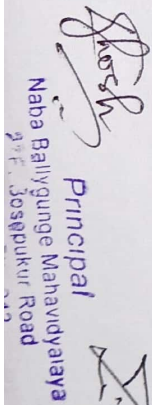 Ghosh
Principal
Naba Ballygunge Mahavidyalaya
Bosepukur Road